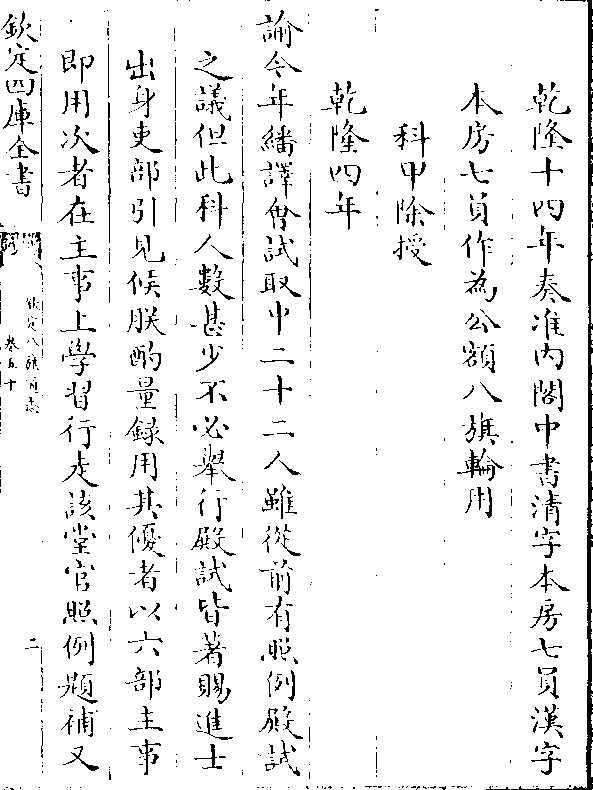 乾隆十四年奏准內閣中書清字本房七員漢字
本房七員作為公額八旗輪用
科甲除授
乾隆四年
諭今年繙譯會試取中二十二人雖從前有照例殿試
之議但此科人數甚少不必舉行殿試皆著賜進士
出身吏部引見候朕酌量錄用其優者以六部主事
即用次者在主事上學習行走該堂官照例題補又
欽定四庫全書
欽定八旗通志
卷五十
二